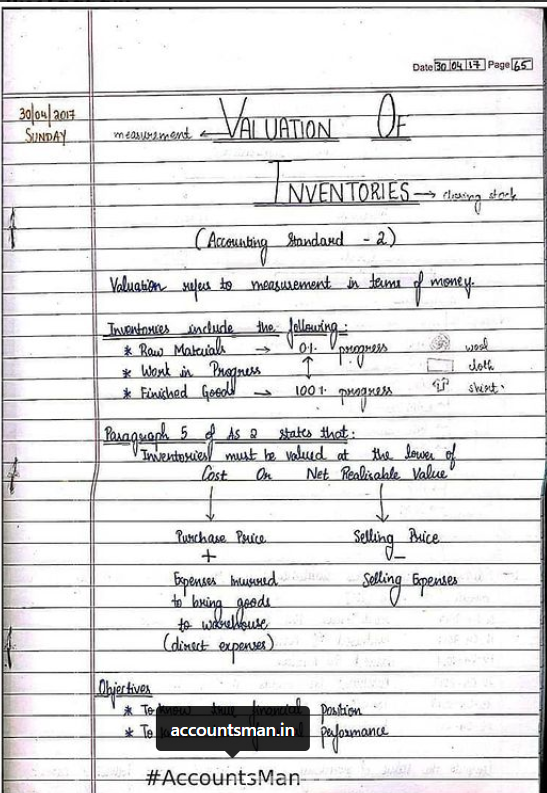 Date 30 04 17 Page 65
30/04/2017
SUNDAY
measurement ← VALUATION OF
INVENTORIES → closing stock
(Accounting Standard - 2)
Valuation refers to measurement in terms of money.
Inventories include the following:
* Raw Materials → 0% progress wool
* Work in Progress ↕ cloth
* Finished Goods → 100% progress shirt.
Paragraph 5 of AS 2 states that:
Inventories must be valued at the lower of
Cost Or Net Realisable Value
↓ ↓
Purchase Price Selling Price
+ -
Expenses incurred Selling Expenses
to bring goods
to warehouse
(direct expenses)
Objectives
* To know true financial position
* To performance
accountsman.in
#AccountsMan